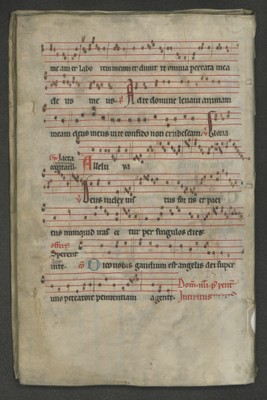 meam et labo rem meum et dimit te omnia peccata mea
de us me us Ad te domine levavi animam
meam deus meus in te confido non erubescam Gloria
Jacta
cogitatū Allelu ya
Deus iudex ius tus for tis et paci
ens numquid iras ce tur per singulos dies
offert
Sperent
in te Dico vobis gaudium est angelis dei super
uno peccatore penitentiam agente